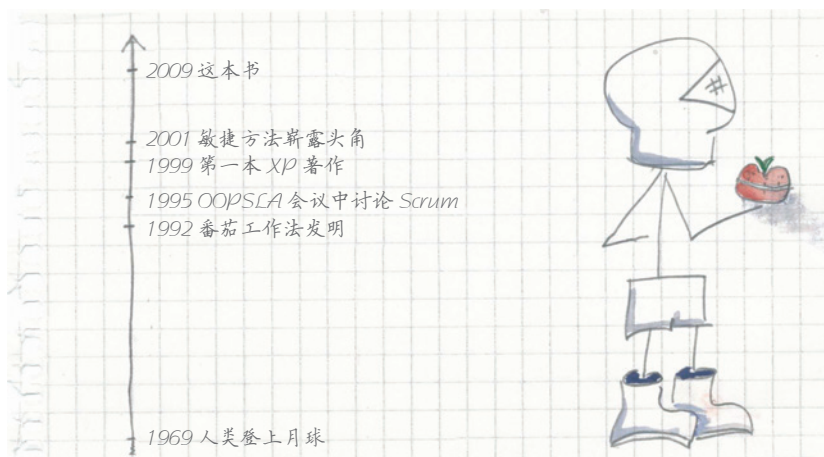 2009 这本书
2001 敏捷方法崭露头角
1999 第一本 XP 著作
1995 OOPSLA 会议中讨论 Scrum
1992 番茄工作法发明
1969 人类登上月球